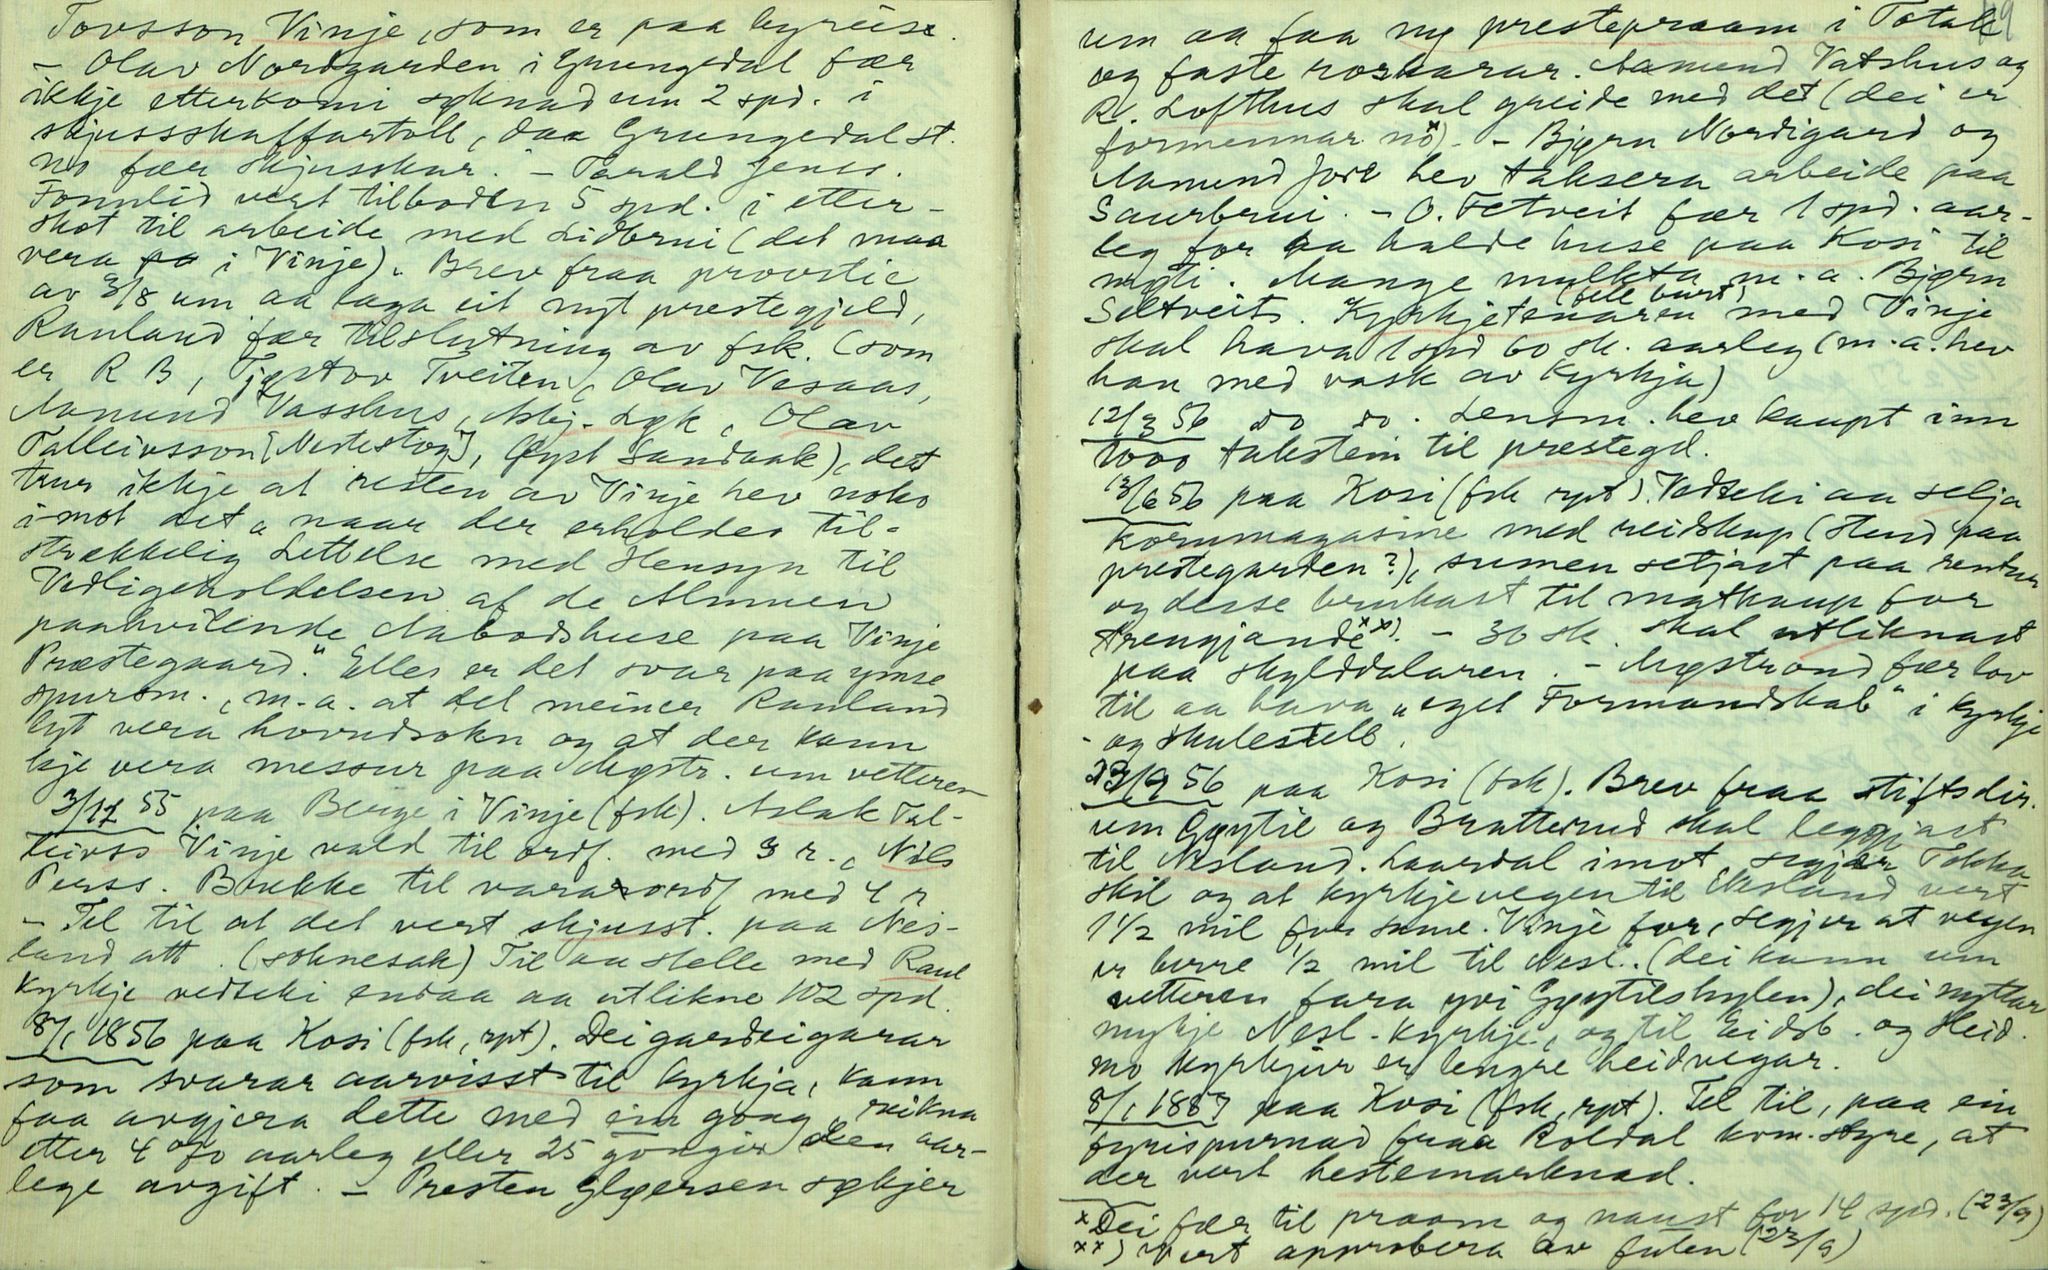 Tovsson Vinje, som er paa byreise.
- Olav Nordgarden i Grungedal fær
ikkje etterkomi søknad um 2 spd. i
skjussskaffartoll, daa Grungedal st.
no fær skjusskar. - Tarald Jens.
Fonnlid vert tilboden 5 spd. i etter-
skot til arbeide med Lidbrui (det maa
vera i Vinje). Brev fraa provstie
av 3/8 um aa laga eit nytt prestegjeld,
Rauland fær tilslutning av fsk. (som
er R B, Tjøstov Tveiten, Olav Vesaas,
Aamund Vasshus, Asbj. Løk, Olav
Talleivsson [Nedestog], Øyst Sandaak), det
trur ikkje at resten av Vinje hev noko
imot det "naar der erholdes til-
strækkelig Lettelse med Hensyn til
Vedligeholdelsen af de Almuen
paahvilende Aabodshuse paa Vinje
Præstegaard." Elles er det svar paa ymse
spursm., m.a. at det meiner Rauland
lyt vera hovudsokn og at der kann
kje vera messur paa Møgstr. um vetteren
3/12 55 paa Berge i Vinje (fsk). Aslak Tal-
leivss Vinje vald til ordf. med 3 r., Nils
Perss. Brukke til varaordf med 4 r
- Tel til at det vert skjusst. paa Nes-
land att. (soknesak) Til aa stelle med Raul
kyrkje vedteki endaa aa utlikne 102 spd.
8/1 1856 paa Kosi (fsk, rpt). Dei gardeigarar
som svarar aarvisst til kyrkja, kann
faa avgjera dette med ein gong, rekna
etter 4 % aarleg eller 25 gonger den aar-
lege avgift. - Presten Gløersen søkjer
um aa faa ny prestepraam i Totak
og faste roskarar. Aamund Vatshus og
R. Lofthus skal greide med det (dei er
formennar no x). - Bjørn Nordigard og
Aamund Jore hev taksera arbeide paa
Saurbrui. - O. Fetveit fær 1 spd. aar-
leg for aa halde huse paa Kosi til
møti. Mange mulkta m.a. Bjørn
Seltveit. Kyrkjetenaren (bele burt) med Vinje
skal hava 1 spd 60 sk. aarleg (m.a. hev
han med vask av kyrkja)
12/3 56 do do. Lensm. hev kaupt inn
1000 takstein til prestegd.
13/6 56 paa Kosi (fsk rpt). Vedteki aa selja
kornmagasine med reidskap (stend paa
prestegarden?), sumen setjast paa rentur
og desse brukast til matkaup for
trengjande xx). - 36 sk. skal utliknast
paa skylddalaren. - Møgstrond fær lov
til aa hava "eget Formandskab" i kyrkje
- og skulestell.
23/9 56 paa Kosi (fsk). Brev fraa stiftsdir.
um Gøytil og Bratterud skal leggjast
til Nesland. Laardal imot, segjer Tokke
skil og at kyrkjevegen til Nesland vert
1 1/2 mil for sume. Vinje for, segjer at vegen
er berre 1/2 mil til Nesl. (dei kann um
vetteren fara yvi Gøytilshylen), dei nyttar
mykje Nesl. kyrkje, og til Eidsb. og Heid.
mo kyrkjur er lengre beidvegar.
8/1 1857 paa Kosi (fsk, rpt). Tel til, paa ein
fyrispurnad fraa Roldal kom.styre, at
der vert hestemarknad.
x Dei fær til praam og naust for 14 spd. (23/9)
xx) Vert approbera av futen (23/9)